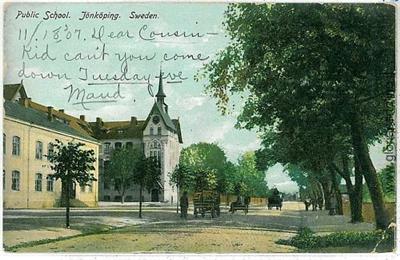 Public School. Jönköping. Sweden.
11/18 07. Dear Cousin–
Kid can't you come
down Tuesday eve
Maud.